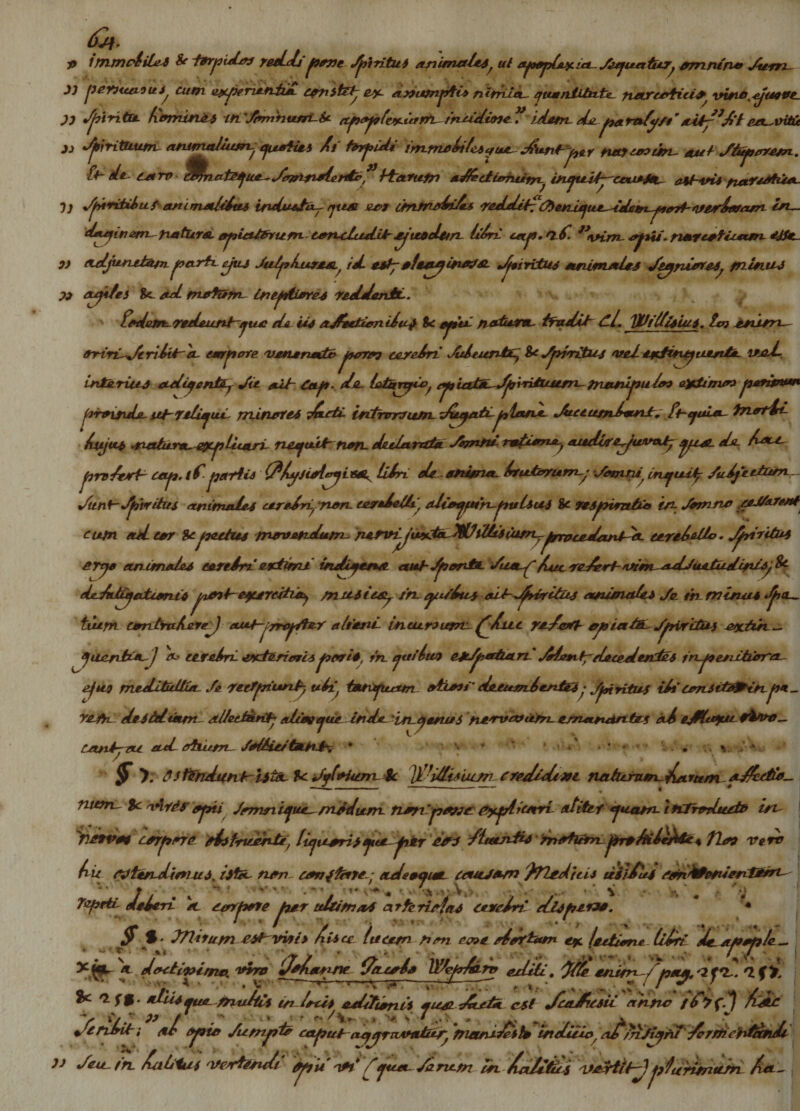 64.
" immobiles & torpidos reddi posse spiritus animales, ut apoplexia sequatur, omnino sum
" persuasus, cum experientia constet, ex assumptis nimia quantitate narcoticis, vino, ejusve
" spiritu homines in somnum & apoplexiam incidisse." idem de paralysi ait, "sit ea vitio
" spirituum animalium, quoties hi torpidi immobilesque fiunt per narcosim aut stuporem.
Et de caro somnolento, "Harum affectionum, inquit, causa est vis narcotica
" spiritibus animalibus inducta, quae eos immobiles reddit. Denique idem post verborum in
daginem natura opiatorum concludit ejusdem libri cap. 26. "vim opii narcoticam esse
" adjunctam parti ejus sulphureae, id est, oleaginosae spiritus animales segniores, minus
" agiles & ad motum ineptiores reddenti.
Eodem redeunt quae de iis affectionibus & opii natura tradit Cl. Willisius. Eos enim
oriri scribit a corpore venenato poros cerebri subeunte, & spiritus vel extinguente vel
interius adigente, sic ait Cap. de Lethargio, opiata spirituum manipulos extimos perimunt
proinde ut reliqui minores facti introrsum fugati plane succumbant. Et quia morbi
hujus natura explicari nequit non declarata somni ratione, audire juvat, quae de hac
profert cap. 16. partis Physiologicae libri de anima brutorum; Somni, inquit, subjectum
sunt spiritus animales cerebri, non cerebelli, alioquin pulsus & respiratio in somno cessarent
cum ad cor & pectus movendum nervi juxta Willisium, procedant a cerebello. Spiritus
ergo animales cerebri extimi indigena aut sponte sua (huc refert vim adsuetudinis, &
defatigationis post exercitia, musicae, in quibus ait spiritus animales se in minus spa-
tium contrahere) aut propter alieni incursum (huc refert opiata spiritus extin-
guentia) ex cerebri exterioris poris, in quibus exspatiari solent, decedentes in penitiora
ejus meditullia se recipiunt, ubi, tanquam otiosi decumbentes; spiritus ibi consitos in pa-
rem desidiam allectant, aliosque inde in genus nervosum emanantes ab effluxu avo-
cant, ac ad otium sollicitant.
§ 7. Ostendunt ista & Sylvium & Willisium credidisse naturam harum affectio-
num & vires opii somnique modum non posse explicari aliter quam introducto in
nervos corpore obstruente, liquorisque per eos fluentis motum prohibente. Nos vero
hic ostendimus, ista non constare; adeoque causam Medicis usibus convenientem
repeti deberi a corpore per ultimas arteriolas cerebri disperso.
§ 8. Mirum est viris hisce lucem non esse obortam ex lectione libri de apople-
xia a doctissimo viro Johanne Jacobo Wepfero editi. Ille enim (pag. 252. 257.
& 258. aliisque multis in locis editionis quae facta est Scafusii anno 1675.) haec
scribit; "ab opio sumpto caput aggravatur, manifesto indicio, ab insigni fermentandi
" seu in halitus vertendi opii vi (quae serum in halitus vertit) plurimum ha-